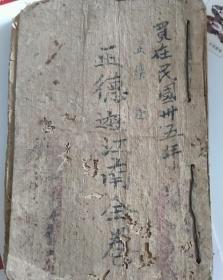 買在民國卅五年
正德遊江南全卷